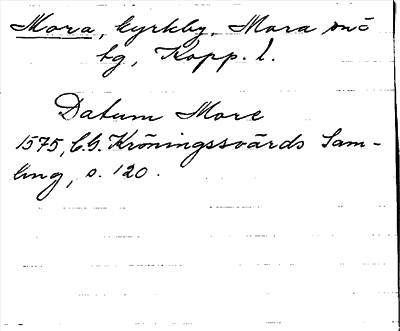 Mora, kyrkby, Mora snc
tg, Kopp. l.
Datum More
1575, C.G. Kröningssvärds Sam-
ling, s. 120.